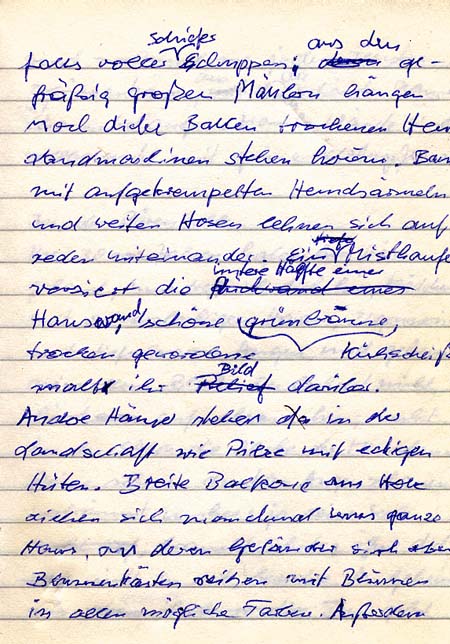 schiefes aus den
falls voller Schuppen; ge-
fräßig großen Mäulern hängen
noch dicke Ballen trockenen Heu
stehen herum. Bau
mit aufgekrempelten Hemdsärmeln
und weiten Hosen lehnen sich auf
reden miteinander. Ein Misthaufe
untere Hälfte einer
verziert die
Hauswand, schöne grünbraune,
trocken gewordene Kuhscheiß
malt ihr Bild darüber.
Andre Häuser stehen da in der
Landschaft wie Pilze mit eckigen
Hüten. Breite Balkone aus Holz
ziehen sich manchmal ums ganze
Haus, an deren Geländer sich
Blumenkästen reihen mit Blumen
in allen mögliche Farben. Außerdem